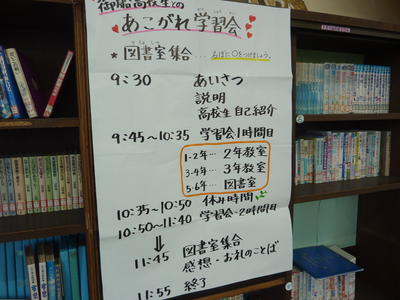 御船高校生との
あこがれ学習会
★図書室集合…名ぼに○をつけましょう。
9:30 あいさつ
説明
高校生自己紹介
9:45~10:35 学習会1時間目
1・2年… 2年教室
3・4年… 3年教室
5・6年… 図書室
10:35~10:50 休み時間
10:50~11:40 学習会2時間目
⇓
11:45 図書室集合
感想・お礼のことば
11:55 終了